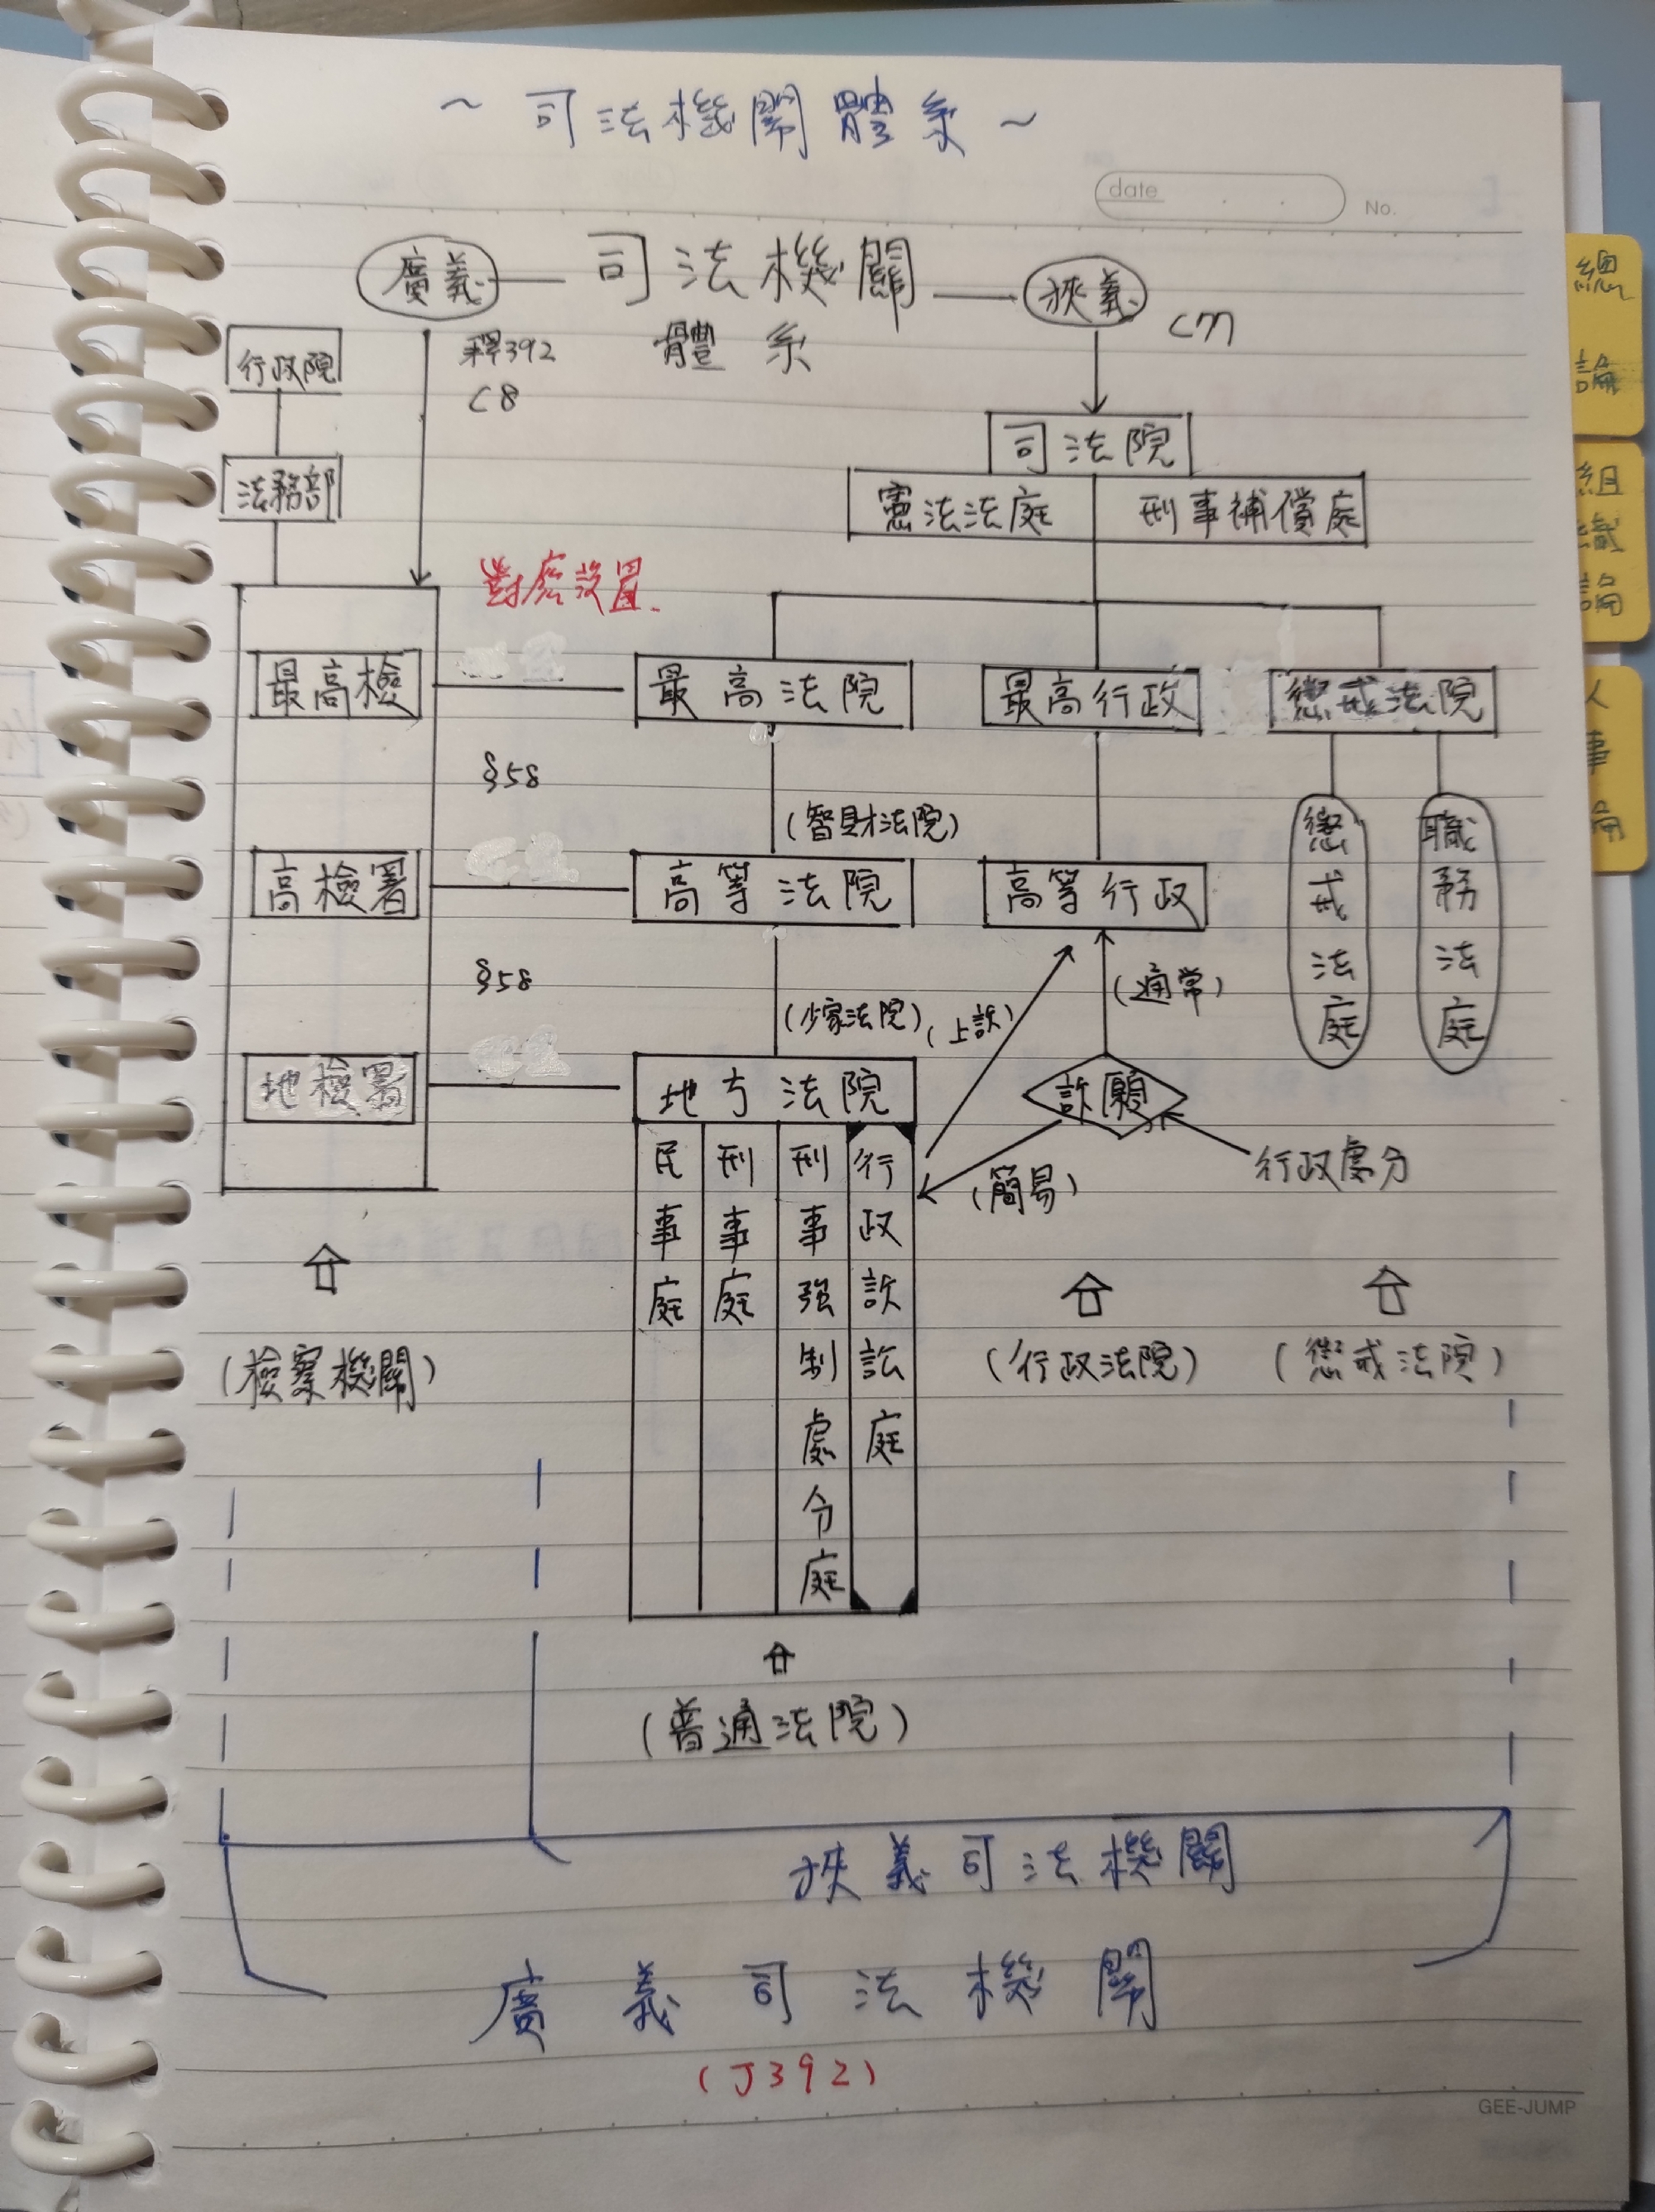 ~ 司法機關體系 ~
date . .
No.
廣義 — 司法機關 — 狹義
體系
釋392
C8
C77
行政院
法務部
司法院
憲法法庭 刑事補償庭
對應設置
最高檢 最高法院 最高行政 懲戒法院
§58
(智財法院)
高檢署 高等法院 高等行政
懲戒法庭
職務法庭
§58
(少家法院)
(上訴)
(通常)
地檢署 地方法院
訴願
行政處分
(簡易)
民事庭
刑事庭
刑事強制處令庭
行政訴訟庭
(檢察機關)
(行政法院)
(懲戒法院)
(普通法院)
狹義司法機關
廣義司法機關
(J392)
GEE-JUMP
總論
組織論
人事